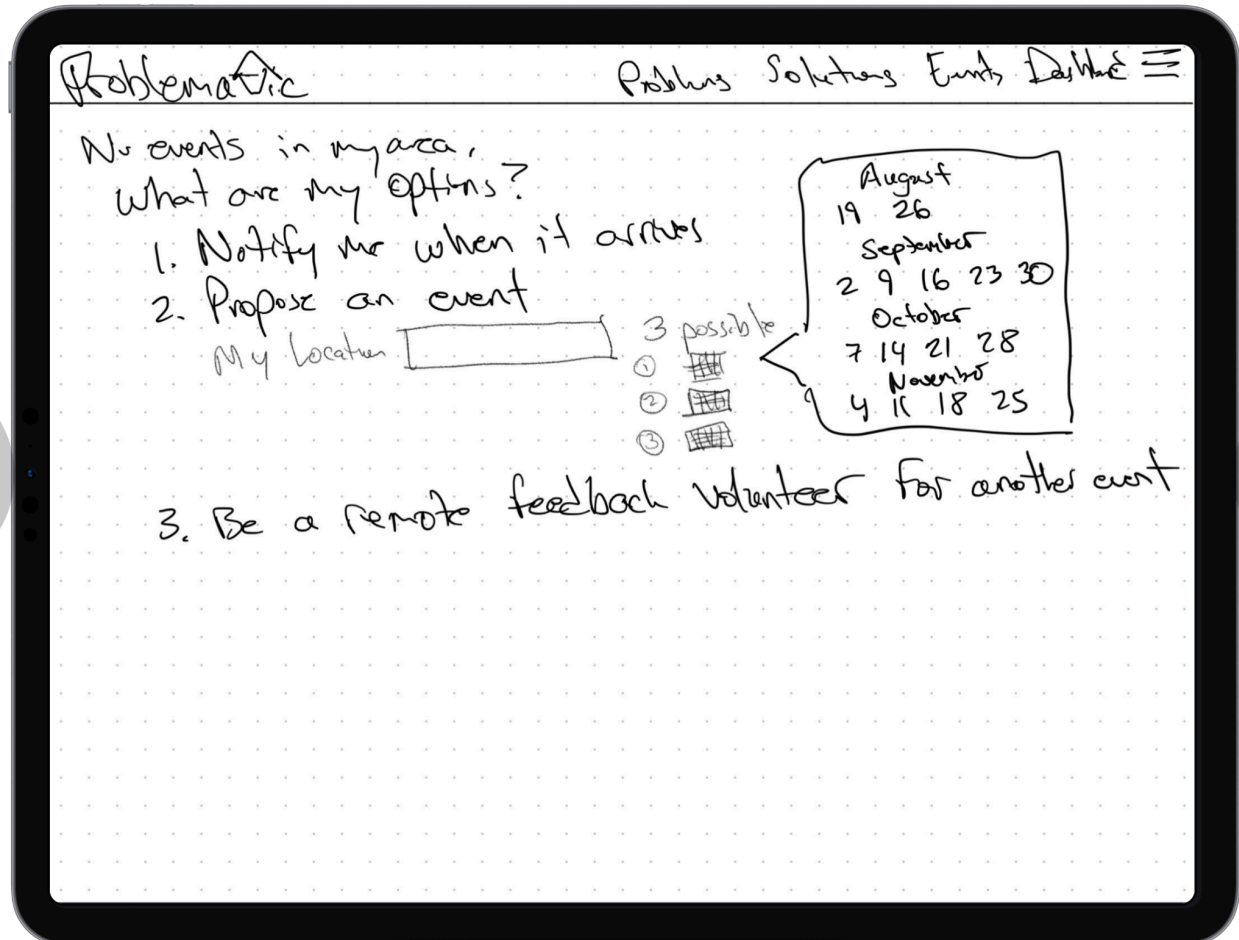 Problematic
Problems Solutions Events Dashboard
No events in my area,
What are my options?
1. Notify me when it arrives
2. Propose an event
My Location
3 possible
1
2
3
August
19 26
September
2 9 16 23 30
October
7 14 21 28
November
4 11 18 25
3. Be a remote feedback volunteer for another event